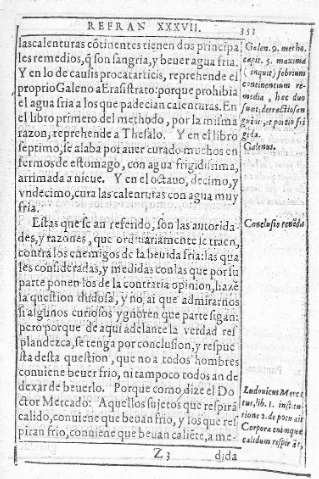 REFRAN XXXVII.
351
las calenturas cõtinentes tienen dos principa
les remedios, q̃ son sangria, y beuer agua fria.
Y en lo de causis procatarticis, reprehende el
proprio Galeno a Erasistrato: porque prohibia
el agua fria a los que padecian calenturas. En
el libro primero del methodo, por la misma
razon, reprehende a Thesalo. Y en el libro
septimo, se alaba por auer curado muchos en
fermos de estomago, con agua frigidissima,
arrimada a nieue. Y en el octauo, decimo, y
vndecimo, cura las calenturas con agua muy
fria.
Estas que se an referido, son las autorida
des, y razones, que ordinariamente se traen,
contra los enemigos de la beuida fria: las qua
les consideradas, y medidas con las que por su
parte ponen los de la contraria opinion, hazẽ
la question dudosa, y no ai que admirarnos
si algunos curiosos ygnoren que parte sigan:
pero porque de aqui adelante la verdad res
plandezca, se tenga por conclusion, y respue
sta desta question, que no a todos hombres
conviene beuer frio, ni tampoco todos an de
dexar de beuerlo. Porque como dize el Do
ctor Mercado: Aquellos sujetos que respirã
calido, conuiene que beuan frio, y los que res
piran frio, conuiene que beuan caliẽte, a me-
Z 3
dida
Galen. 9. metho.
capit. 5. maxima
(inquit) febrium
continentium re-
media, hec duo
sunt: detractio san
guinis, et potio fri
gida.
Galenus.
Conclusio
Ludouicus Merca
tus, lib. 1.
Corpora
calidum